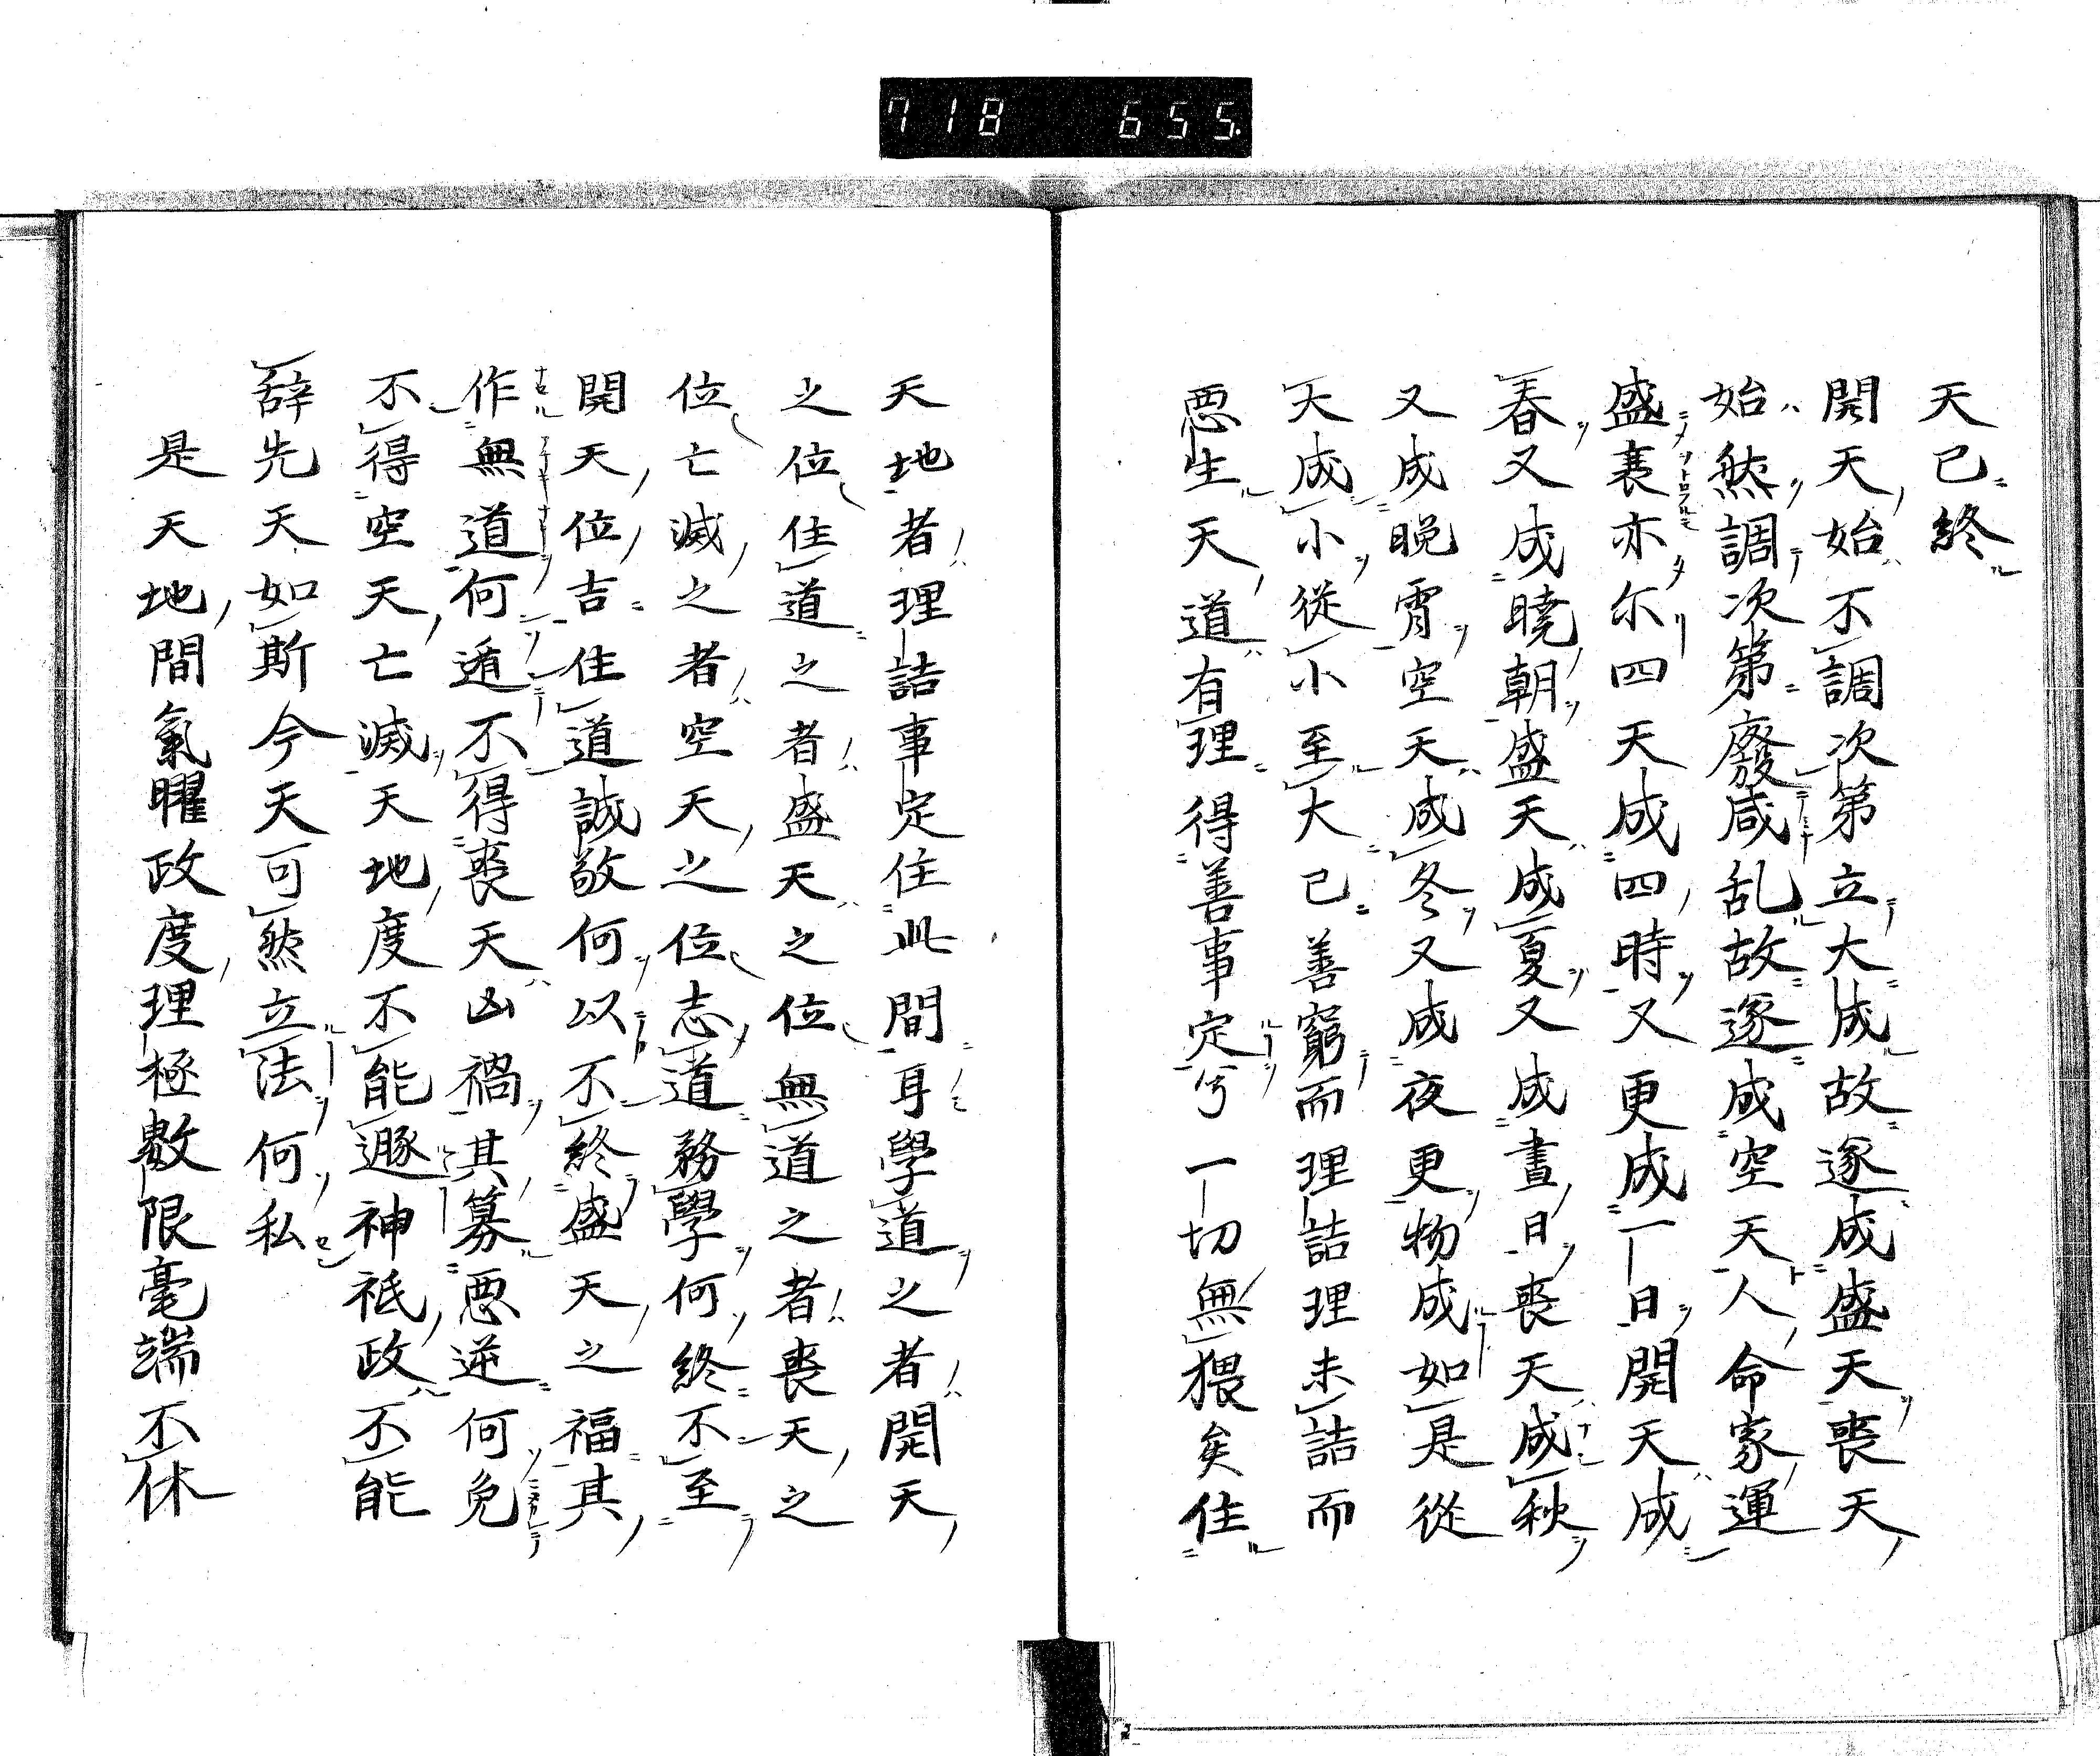 718 655
天已終
開天始不調次第立大成故逐成盛天喪天
始然調次第廢咸乱故逐成空天人命家運
盛衰亦尓四天成四時又更成一日開天成
春又成曉朝盛天成夏又成晝日喪天成秋
又成晩霄空天成冬又成夜更物成如是從
大成小從小至大已善窮而理詰理未詰而
悪生天道有理得善事定兮一切無猥矣住
天地者理詰事定住此間耳學道之者開天
之位住道之者盛天之位無道之者喪天之
位亡滅之者空天之位志道務學何終不至
開天位吉住道誠敬何以不終盛天之福其
作無道何遁不得喪天凶禍其募悪逆何免
不得空天亡滅天地度不能遯神祇政不能
辞先天如斯今天可然立法何私
是天地間氣曜政度理極數限毫端不休